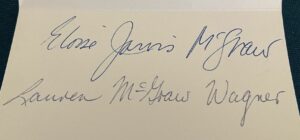 Eloise Jarvis McGraw
Lauren McGraw Wagner